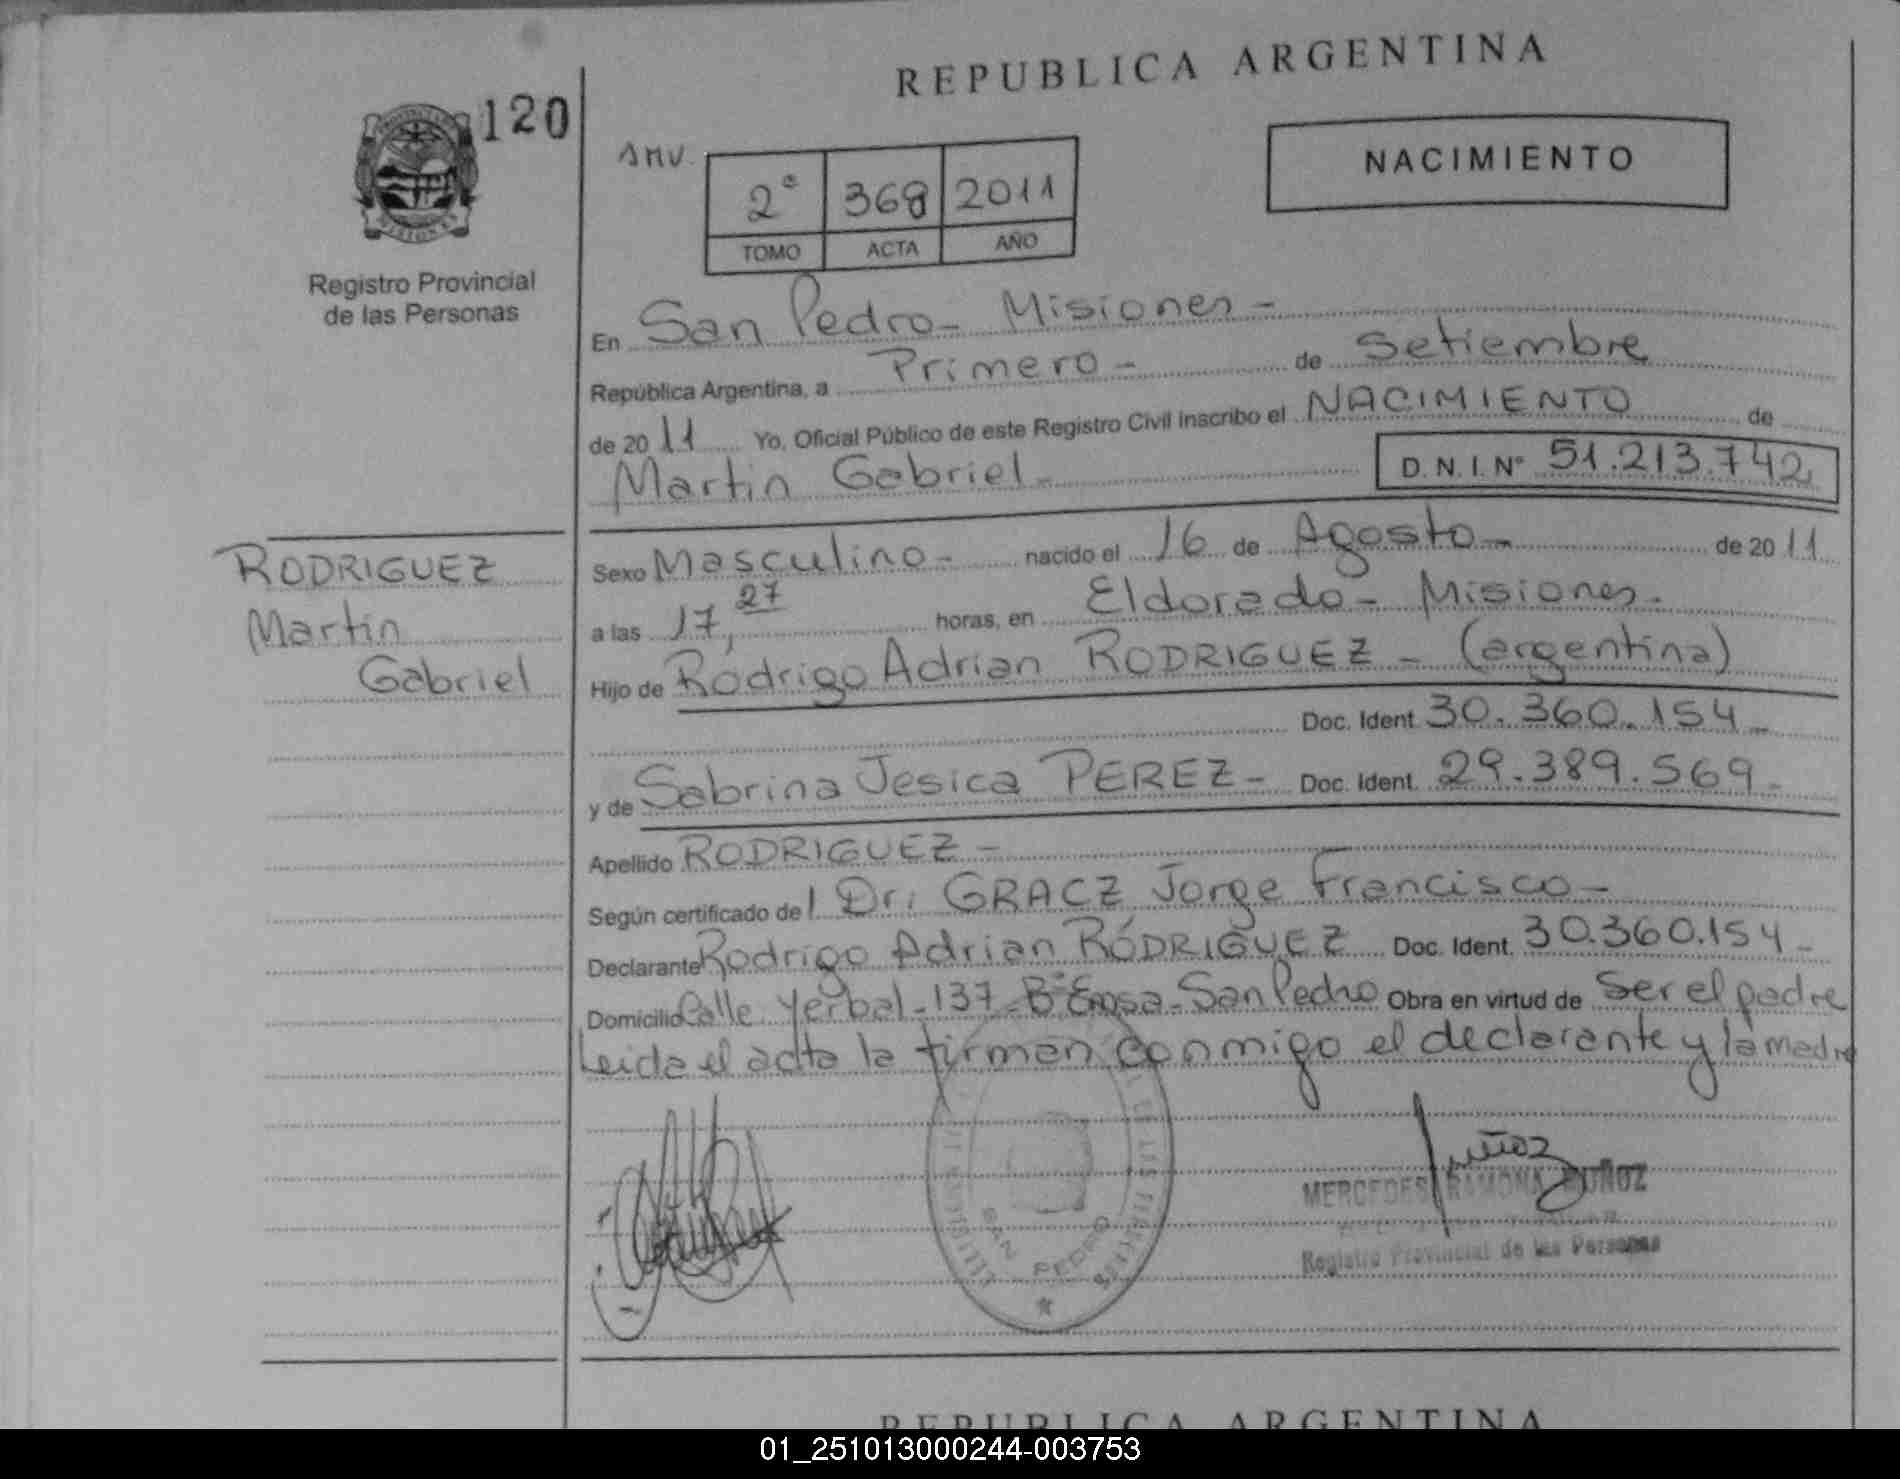 REPUBLICA ARGENTINA
120
Registro Provincial
de las Personas
NACIMIENTO
2º 368 2011
TOMO ACTA AÑO
En San Pedro - Misiones -
República Argentina, a Primero - de Setiembre
de 2011 Yo, Oficial Público de este Registro Civil inscribo el NACIMIENTO de
Martin Gabriel - D.N.I.Nº 51.213.742
RODRIGUEZ
Martin
Gabriel
Sexo Masculino - nacido el 16 de Agosto - de 2011
a las 17,27 horas, en Eldorado - Misiones -
Hijo de Rodrigo Adrian RODRIGUEZ - (argentina)
Doc. Ident. 30.360.154 -
y de Sabrina Jesica PEREZ - Doc. Ident. 29.389.569 -
Apellido RODRIGUEZ -
Según certificado del Dr. GRACZ Jorge Francisco -
Declarante Rodrigo Adrian RODRIGUEZ Doc. Ident. 30.360.154 -
Domicilio Calle Yerbal - 137 - San Pedro Obra en virtud de Ser el padre
Leida el acta la firman conmigo el declarante y la madre
SAN PEDRO
Muñoz
MERCEDES RAMONA MUÑOZ
Registro Provincial de las Personas
REPUBLICA ARGENTINA
01_251013000244-003753